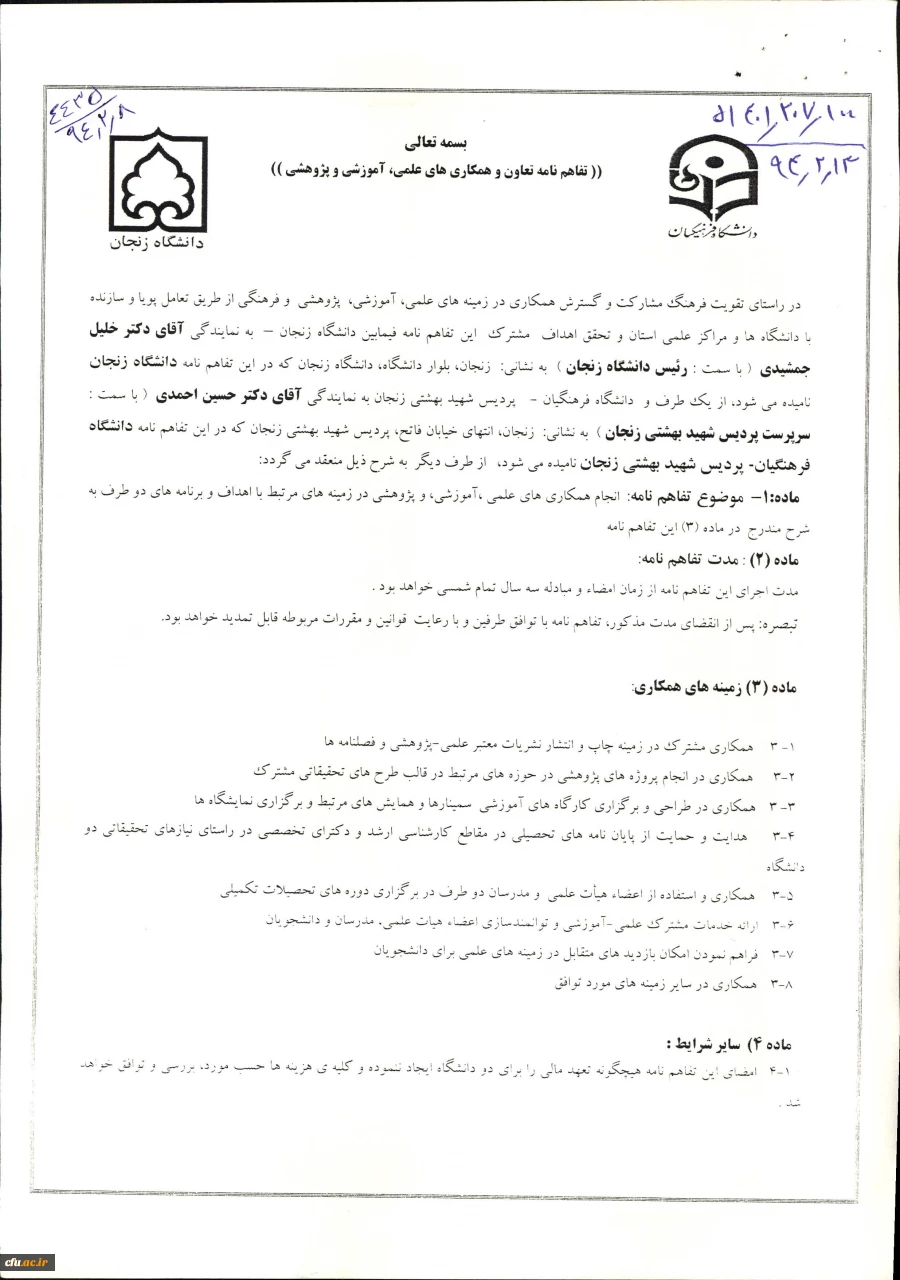 ۴۴۳۵
۹۴٫۲٫۸
۵۱۴۰۱٫۲۰۷٫۱۰۰
۹۴٫۲٫۱۳
بسمه تعالی
(( تفاهم نامه تعاون و همکاری های علمی، آموزشی و پژوهشی ))
دانشگاه زنجان
دانشگاه فرهنگیان
در راستای تقویت فرهنگ مشارکت و گسترش همکاری در زمینه های علمی، آموزشی، پژوهشی و فرهنگی از طریق تعامل پویا و سازنده
با دانشگاه ها و مراکز علمی استان و تحقق اهداف مشترک این تفاهم نامه فیمابین دانشگاه زنجان – به نمایندگی آقای دکتر خلیل
جمشیدی ( با سمت : رئیس دانشگاه زنجان ) به نشانی: زنجان، بلوار دانشگاه، دانشگاه زنجان که در این تفاهم نامه دانشگاه زنجان
نامیده می شود، از یک طرف و دانشگاه فرهنگیان - پردیس شهید بهشتی زنجان به نمایندگی آقای دکتر حسین احمدی ( با سمت :
سرپرست پردیس شهید بهشتی زنجان ) به نشانی: زنجان، انتهای خیابان فاتح، پردیس شهید بهشتی زنجان که در این تفاهم نامه دانشگاه
فرهنگیان- پردیس شهید بهشتی زنجان نامیده می شود، از طرف دیگر به شرح ذیل منعقد می گردد:
ماده:۱– موضوع تفاهم نامه: انجام همکاری های علمی ،آموزشی، و پژوهشی در زمینه های مرتبط با اهداف و برنامه های دو طرف به
شرح مندرج در ماده (۳) این تفاهم نامه
ماده (۲) : مدت تفاهم نامه:
مدت اجرای این تفاهم نامه از زمان امضاء و مبادله سه سال تمام شمسی خواهد بود .
تبصره: پس از انقضای مدت مذکور، تفاهم نامه با توافق طرفین و با رعایت قوانین و مقررات مربوطه قابل تمدید خواهد بود.
ماده (۳) زمینه های همکاری:
۳-۱ همکاری مشترک در زمینه چاپ و انتشار نشریات معتبر علمی-پژوهشی و فصلنامه ها
۳-۲ همکاری در انجام پروژه های پژوهشی در حوزه های مرتبط در قالب طرح های تحقیقاتی مشترک
۳-۳ همکاری در طراحی و برگزاری کارگاه های آموزشی سمینارها و همایش های مرتبط و برگزاری نمایشگاه ها
۳-۴ هدایت و حمایت از پایان نامه های تحصیلی در مقاطع کارشناسی ارشد و دکترای تخصصی در راستای نیازهای تحقیقاتی دو
دانشگاه
۳-۵ همکاری و استفاده از اعضاء هیأت علمی و مدرسان دو طرف در برگزاری دوره های تحصیلات تکمیلی
۳-۶ ارائه خدمات مشترک علمی -آموزشی و توانمندسازی اعضاء هیات علمی، مدرسان و دانشجویان
۳-۷ فراهم نمودن امکان بازدید های متقابل در زمینه های علمی برای دانشجویان
۳-۸ همکاری در سایر زمینه های مورد توافق
ماده ۴) سایر شرایط :
۴-۱ امضای این تفاهم نامه هیچگونه تعهد مالی را برای دو دانشگاه ایجاد ننموده و کلیه ی هزینه ها حسب مورد، بررسی و توافق خواهد
شد .
cfu.ac.ir